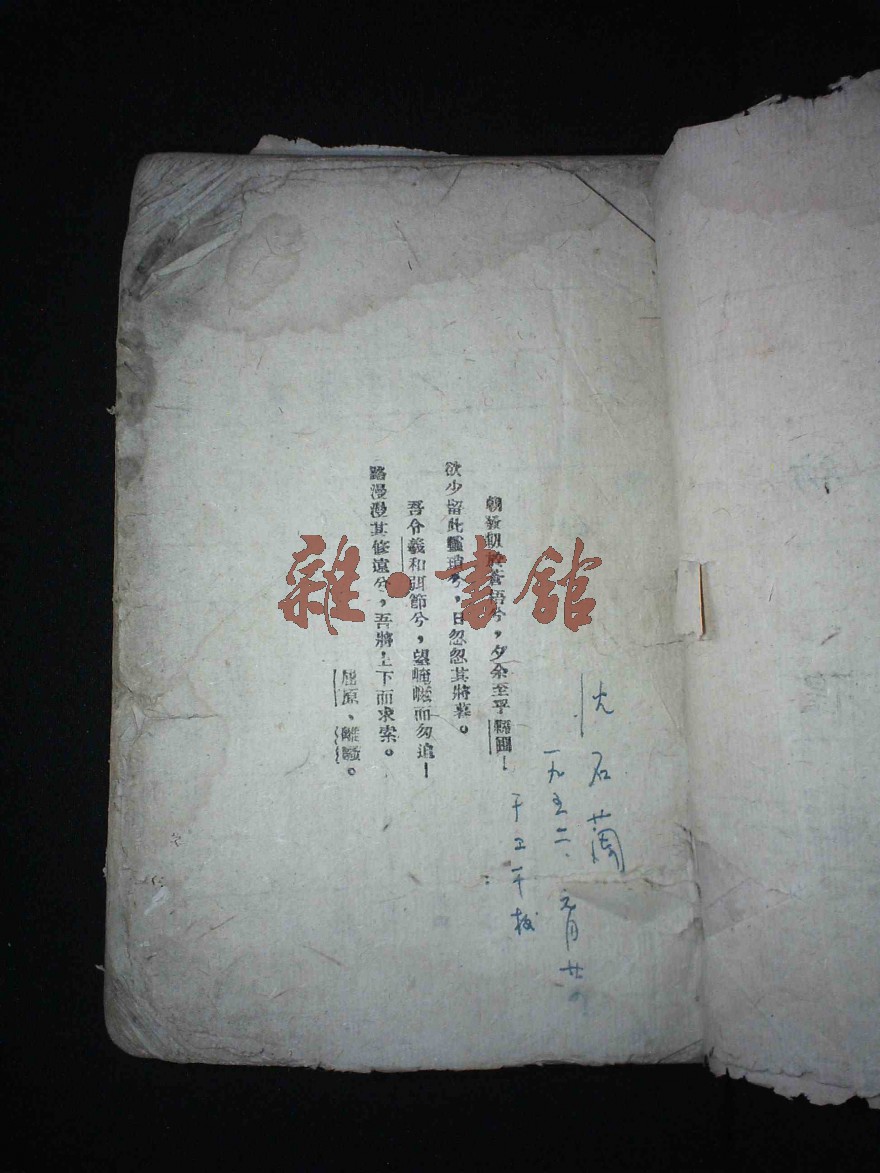 沈石蘭
一九五二、元月廿。
于工干校
朝發軔於蒼梧兮，夕余至乎縣圃！
欲少留此靈瑣兮，日忽忽其將暮。
吾令羲和弭節兮，望崦嵫而勿迫！
路漫漫其修遠兮，吾將上下而求索。
屈原、離騷。
雜·書館